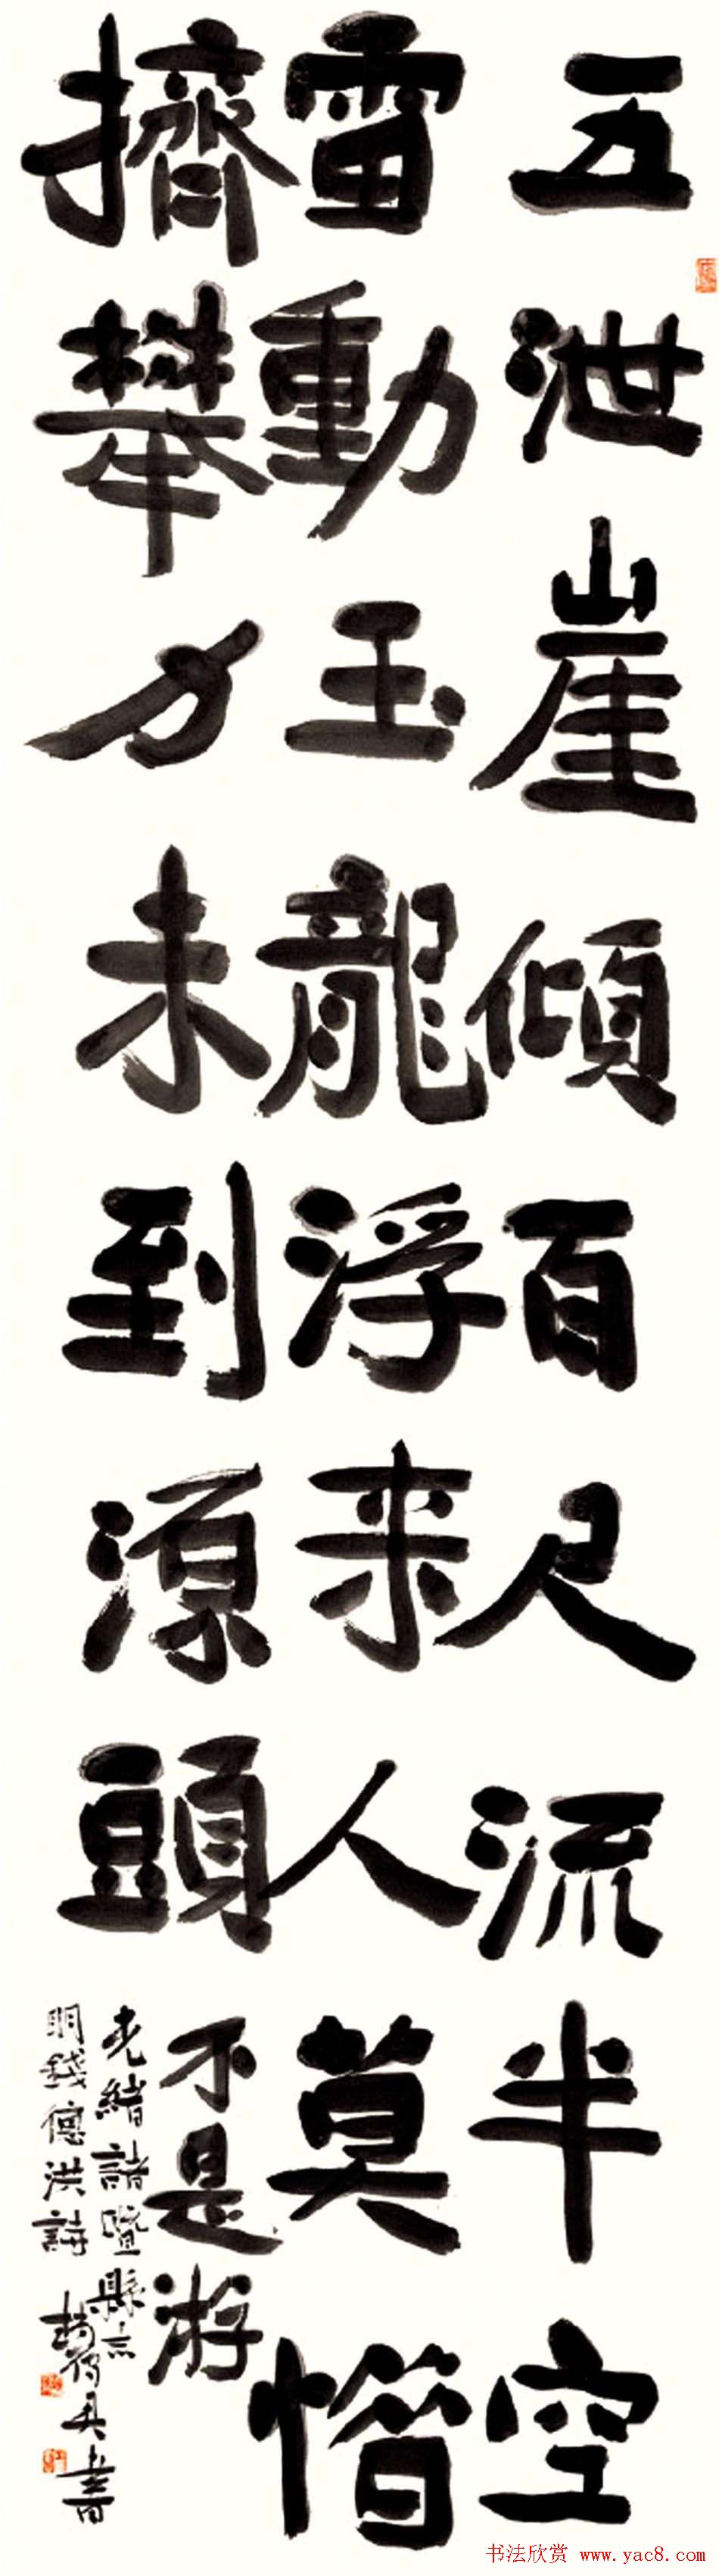 五泄崖傾百尺流半空
雷動玉龍浮来人莫惜
擠攀力未到源頭不是游
光緒諸暨縣志
明錢德洪詩 趙雁君書
书法欣赏 www.yac8.com